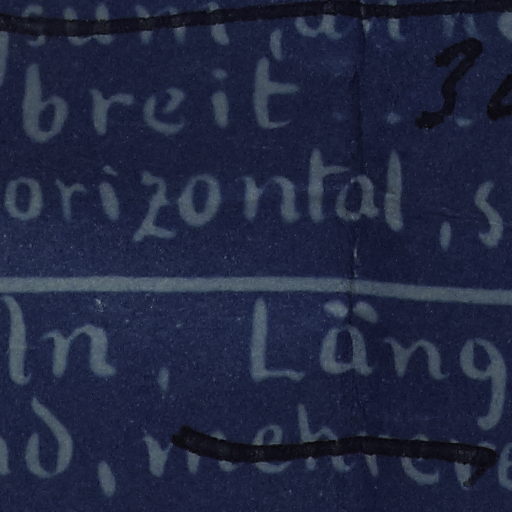 breit
orizontal, s
ln, Läng
nd, mehrere